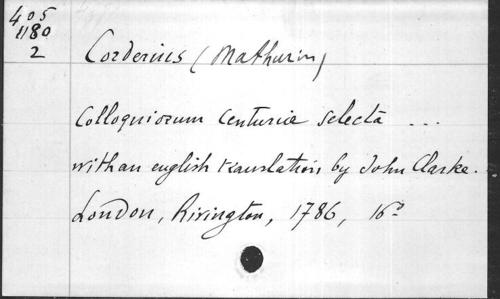 405
1180
2
Corderius (Mathurin)
Colloquiorum Centuriæ selecta ...
with an english translation by John Clarke.
London, Rivington, 1786, 16º